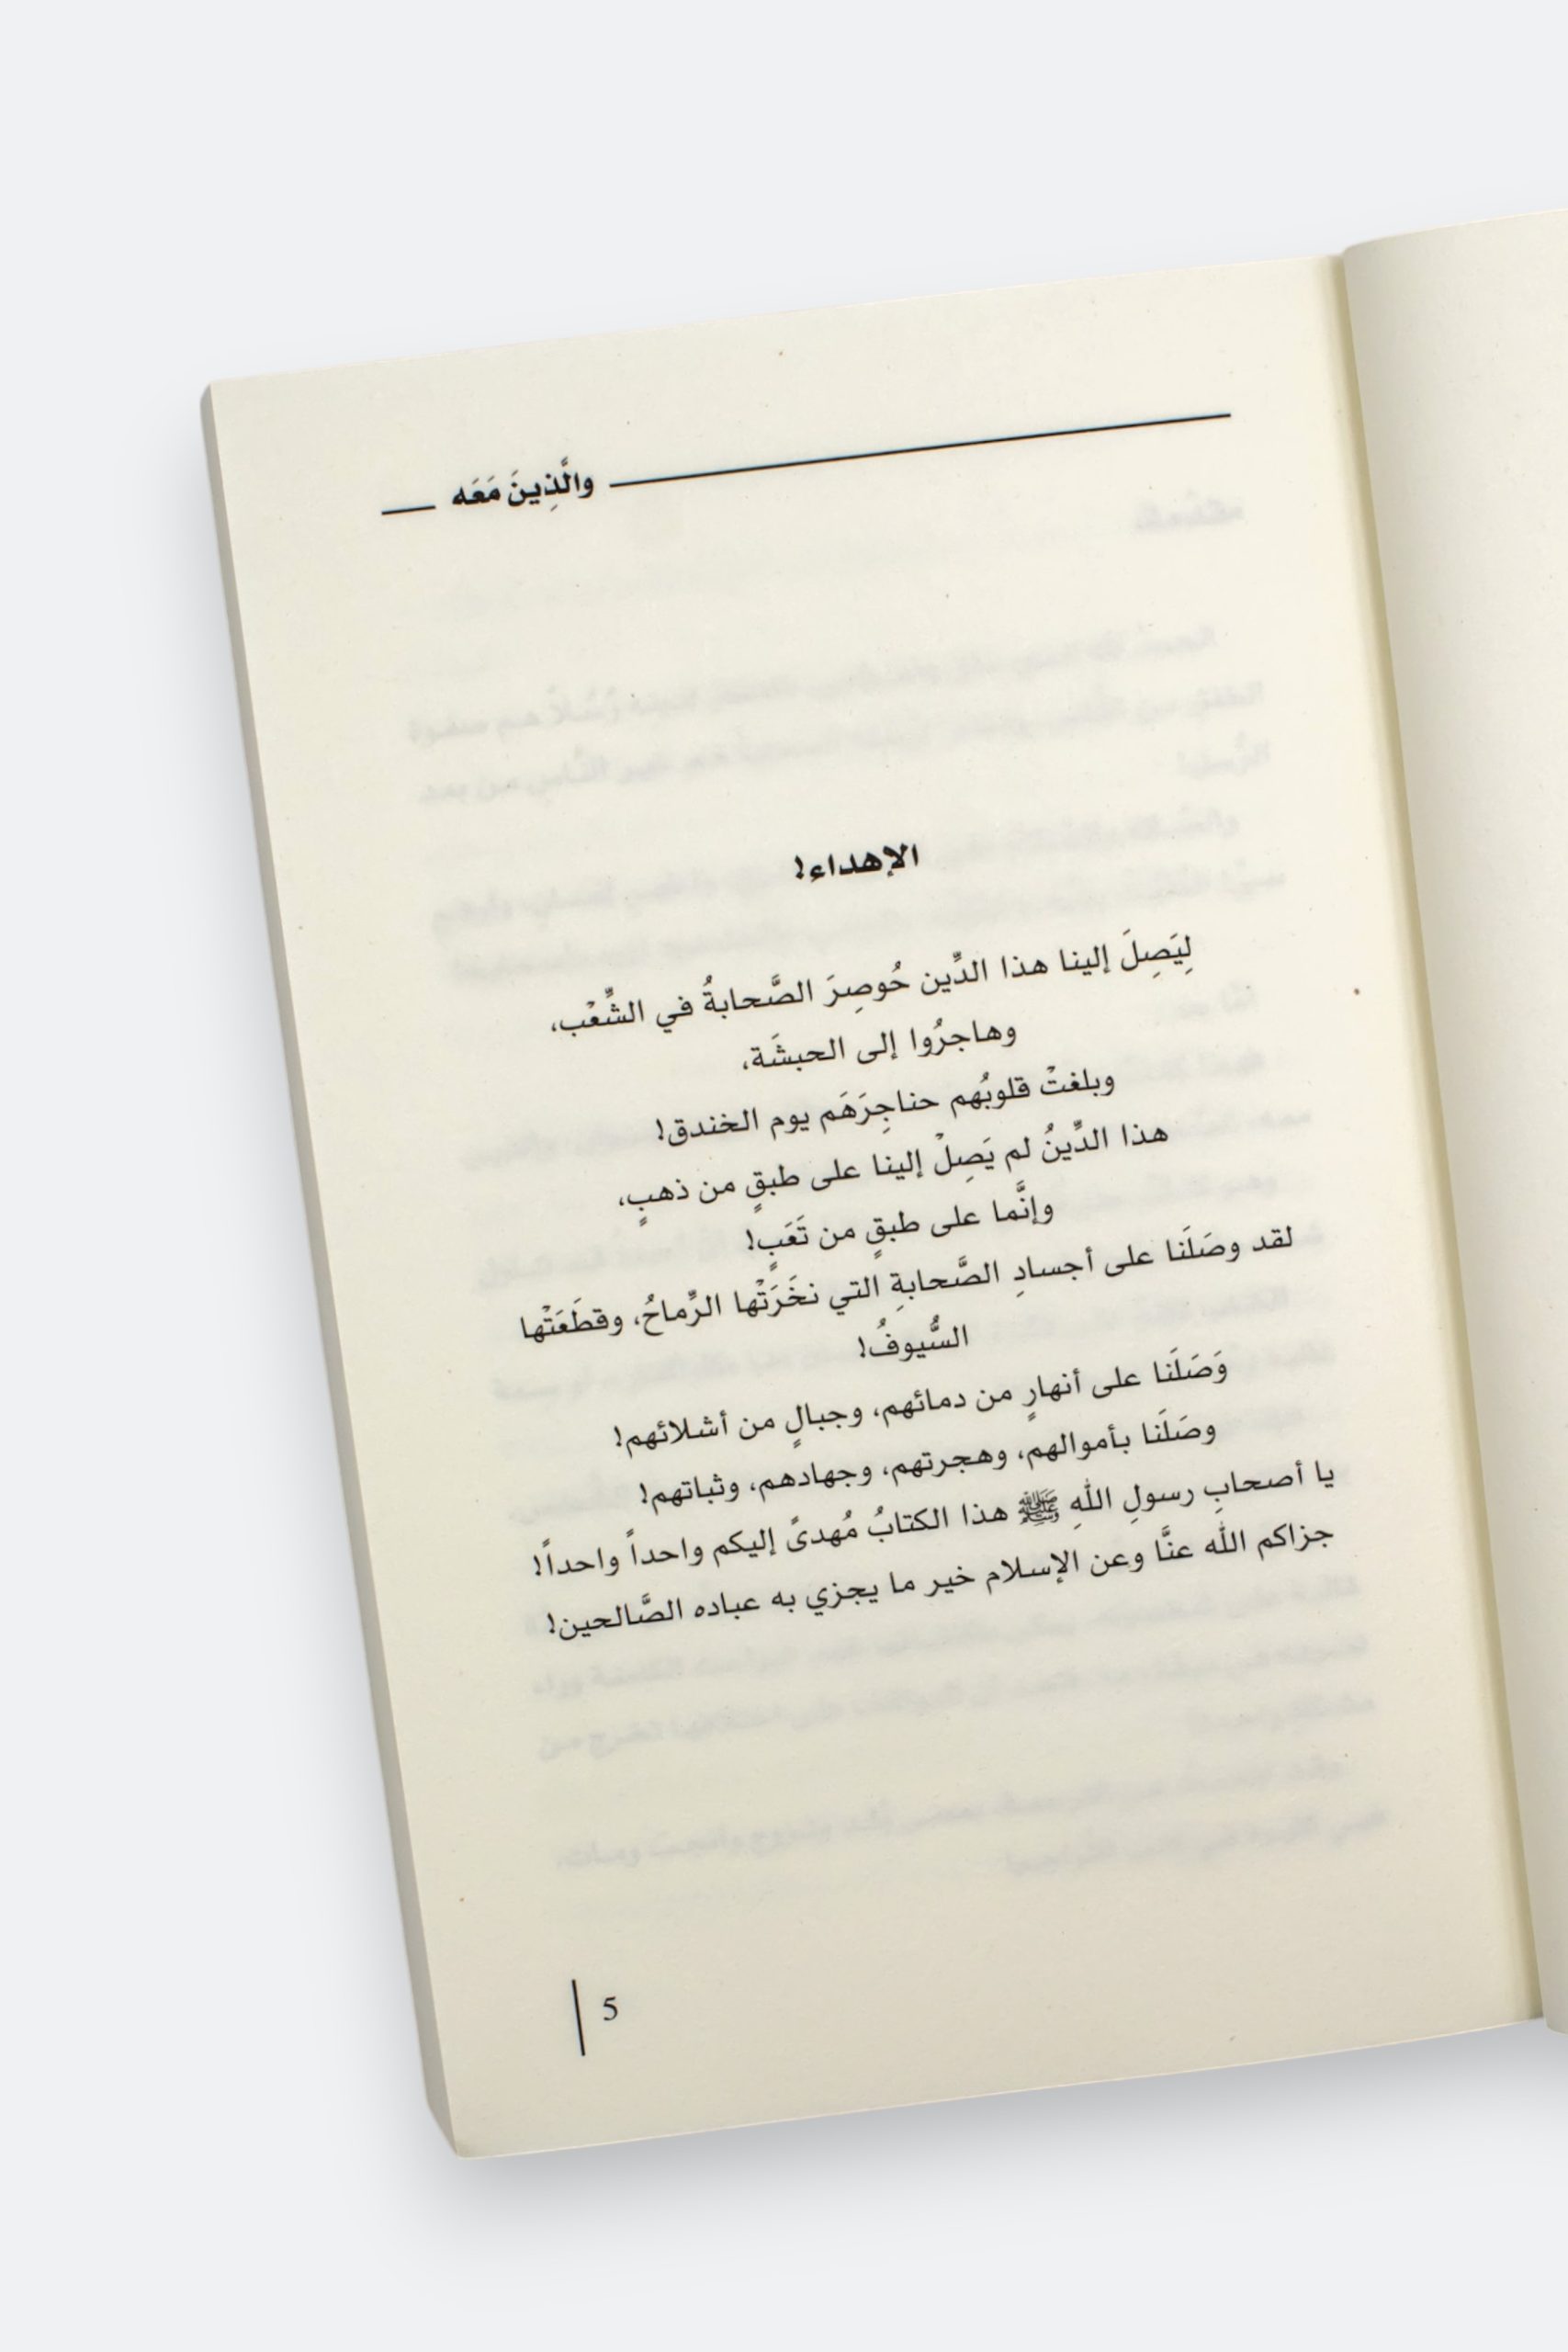 والَّذِينَ مَعَه
الإهداء!
لِيَصِلَ إلينا هذا الدِّين حُوصِرَ الصَّحابةُ في الشِّعْب،
وهاجرُوا إلى الحبشَة،
وبلغتْ قلوبُهم حناجِرَهَم يوم الخندق!
هذا الدِّينُ لم يَصِلْ إلينا على طبقٍ من ذهبٍ،
وإنَّما على طبقٍ من تَعَبٍ!
لقد وصَلَنا على أجسادِ الصَّحابةِ التي نخَرَتْها الرِّماحُ، وقطَعَتْها
السُّيوفُ!
وَصَلَنا على أنهارٍ من دمائهم، وجبالٍ من أشلائهم!
وصَلَنا بأموالهم، وهجرتهم، وجهادهم، وثباتهم!
يا أصحابِ رسولِ اللهِ ﷺ هذا الكتابُ مُهدىً إليكم واحداً واحداً!
جزاكم الله عنَّا وعن الإسلام خير ما يجزي به عباده الصَّالحين!
5